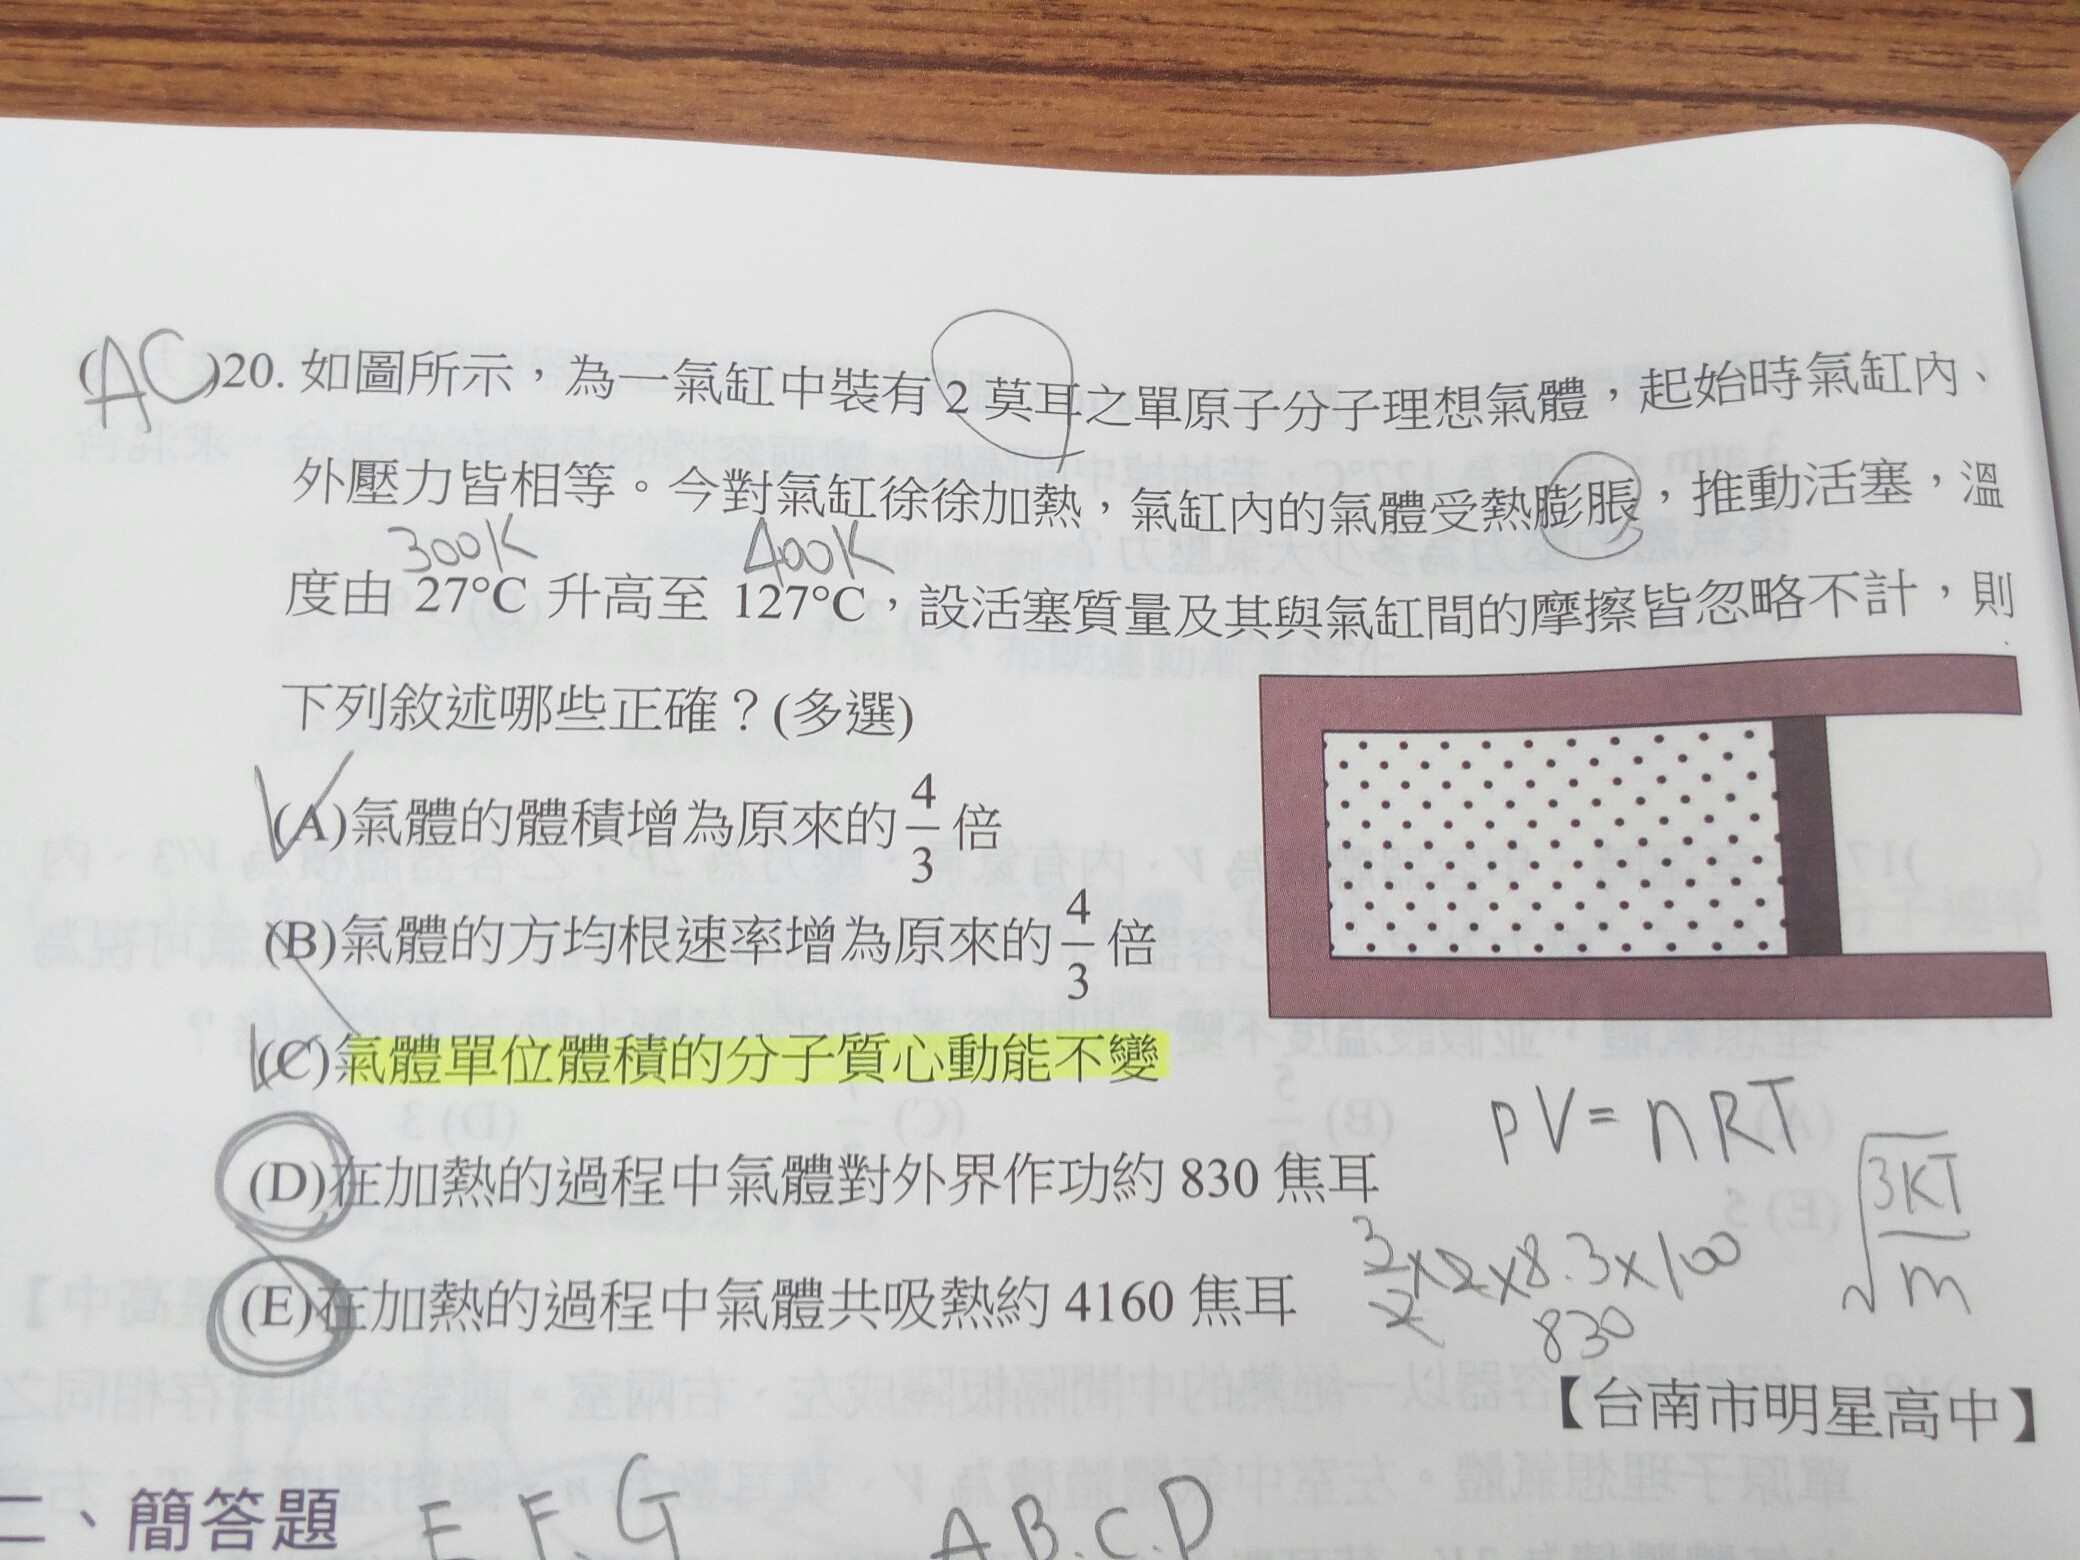 (AC)20. 如圖所示，為一氣缸中裝有 2 莫耳之單原子分子理想氣體，起始時氣缸內、
外壓力皆相等。今對氣缸徐徐加熱，氣缸內的氣體受熱膨脹，推動活塞，溫
300K 400K
度由 27°C 升高至 127°C，設活塞質量及其與氣缸間的摩擦皆忽略不計，則
下列敘述哪些正確？(多選)
(A)氣體的體積增為原來的 4/3 倍
(B)氣體的方均根速率增為原來的 4/3 倍
(C)氣體單位體積的分子質心動能不變
PV = nRT
(D)在加熱的過程中氣體對外界作功約 830 焦耳
√(3KT/m)
3/2 × 2 × 8.3 × 100
(E)在加熱的過程中氣體共吸熱約 4160 焦耳
830
【台南市明星高中】
二、簡答題
E F. G A B. C. D